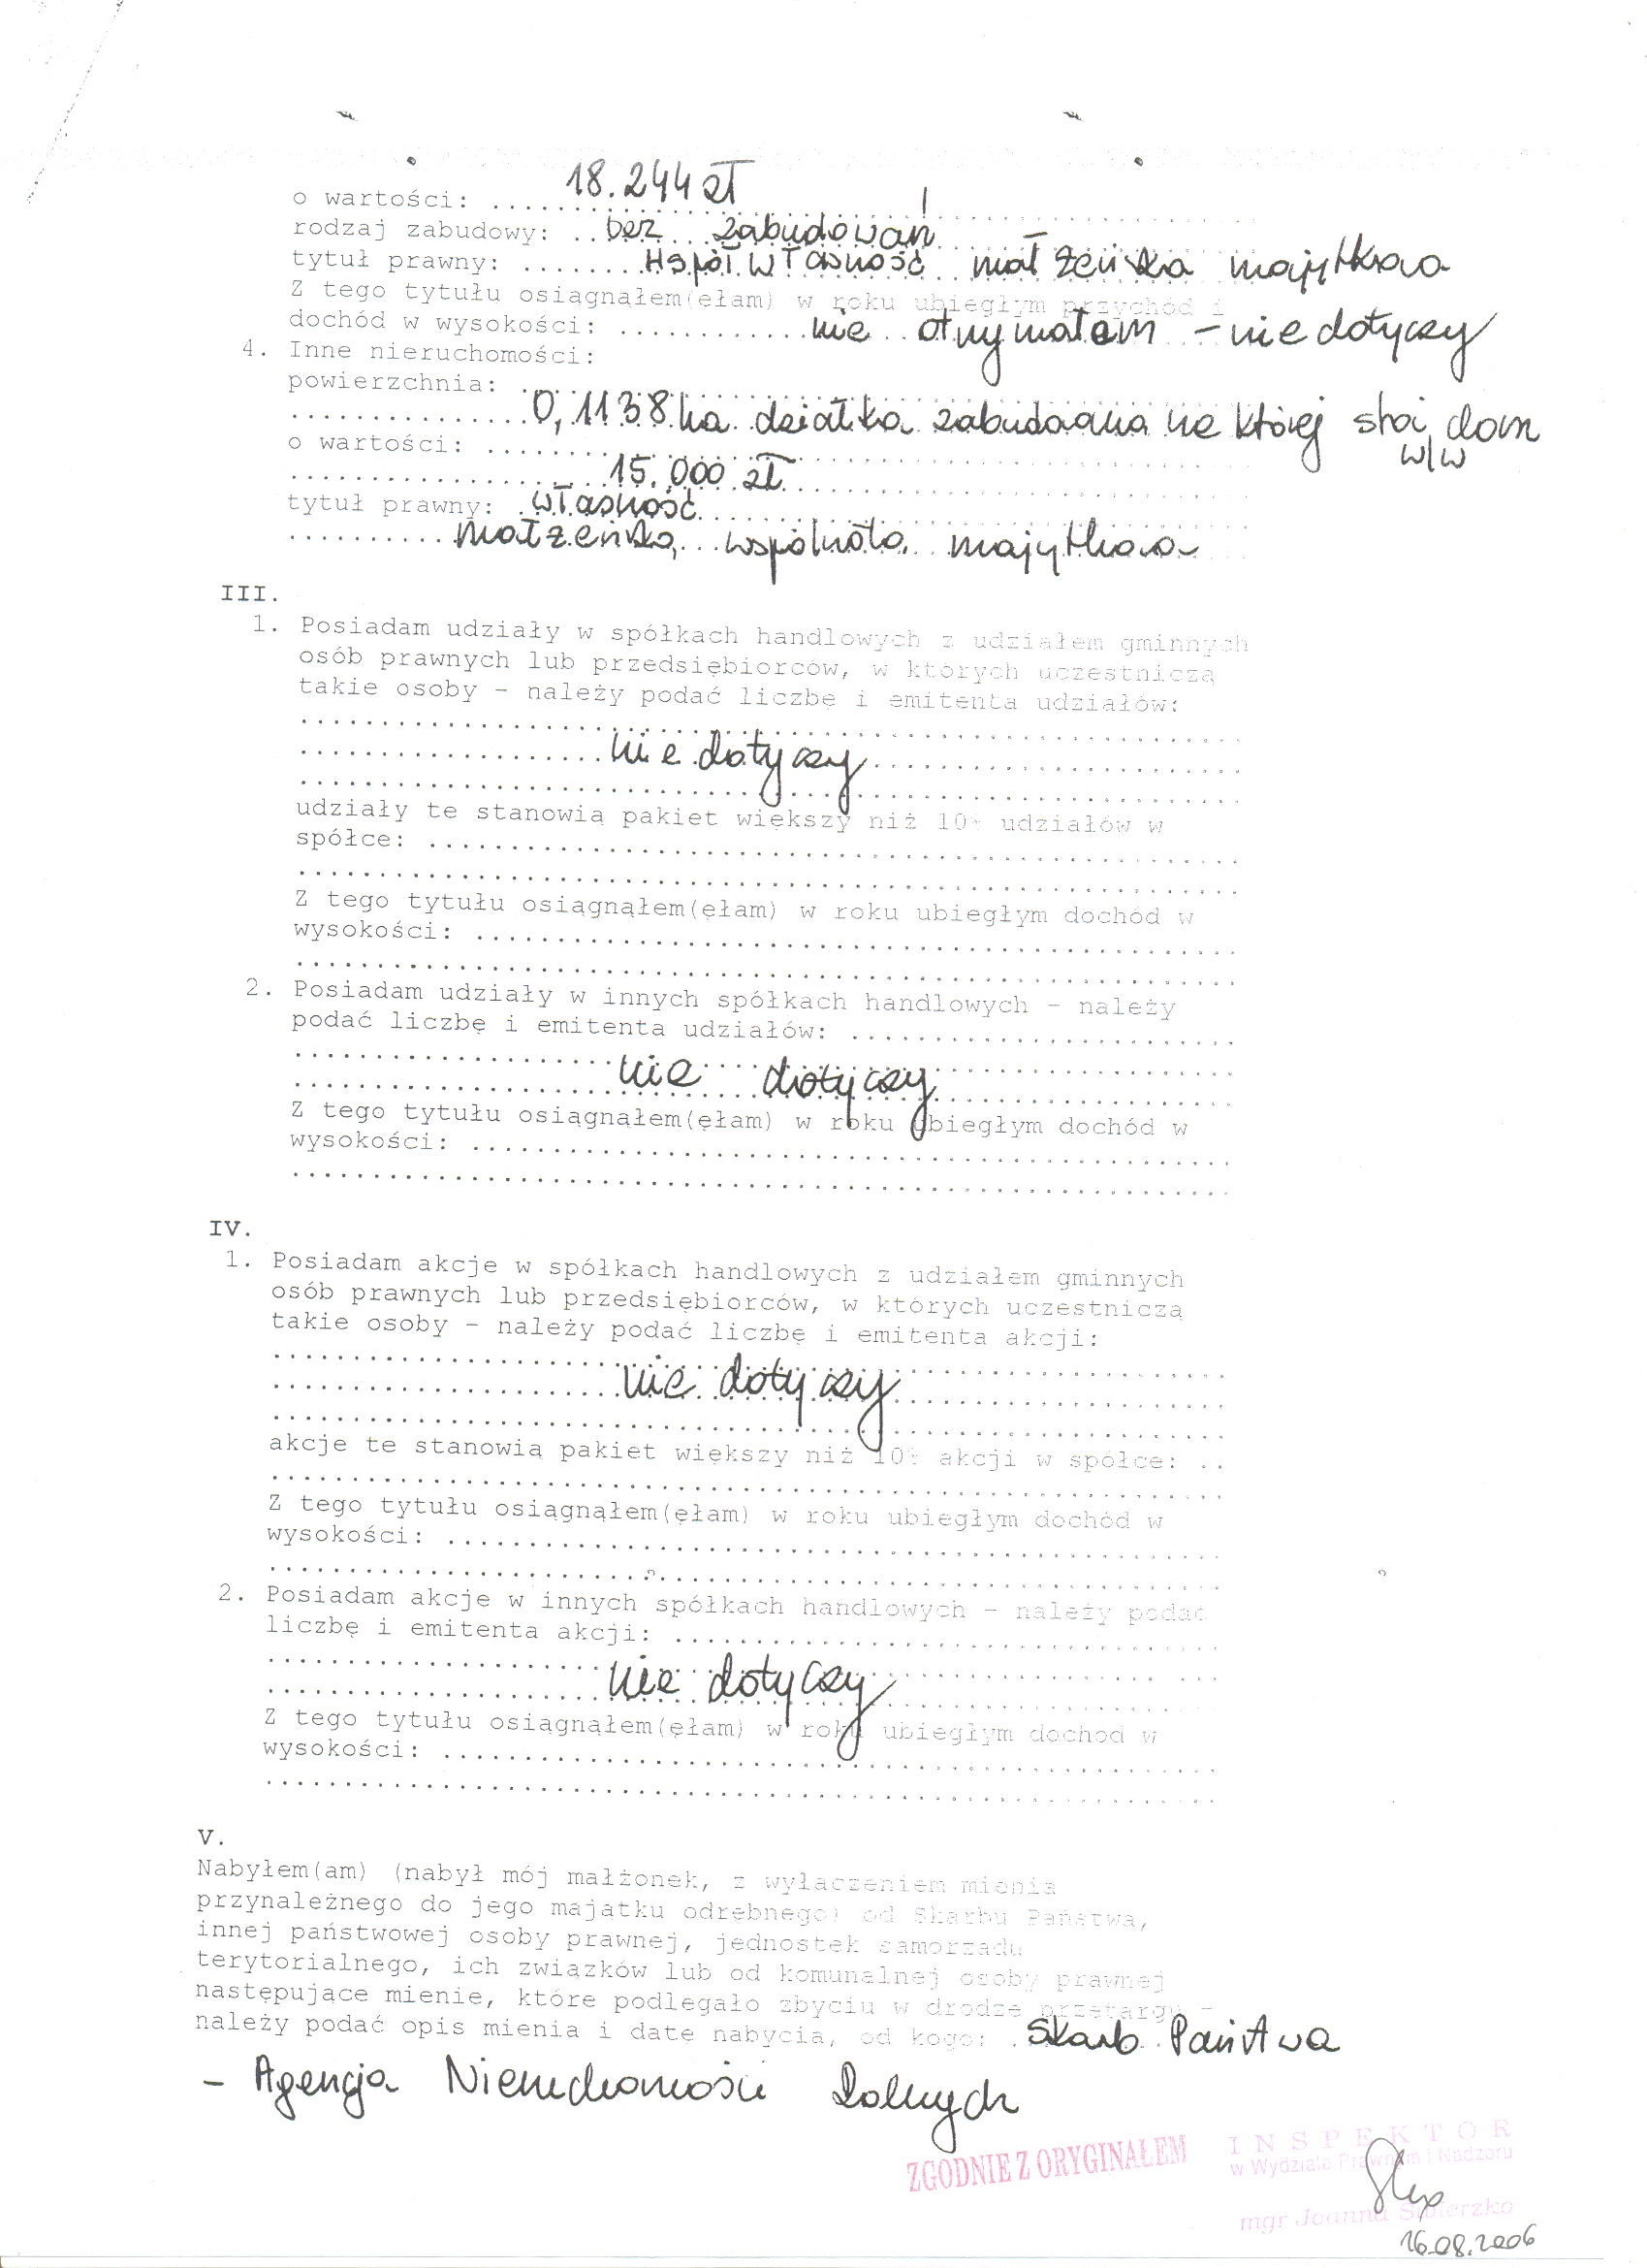 o wartości: ....18.244 zł
rodzaj zabudowy: ..bez zabudowań
tytuł prawny: ........Współwłasność małżeńska majątkowa
Z tego tytułu osiągnąłem(ęłam) w roku ubiegłym przychód i
dochód w wysokości: ............nie otrzymałem - nie dotyczy
4. Inne nieruchomości:
powierzchnia: ..
...............0,1138 ha działka zabudowana na której stoi dom
w/w
o wartości: ........
....................15.000 zł
tytuł prawny: .własność
..........małżeńska wspólnota majątkowa
III.
1. Posiadam udziały w spółkach handlowych z udziałem gminnych
osób prawnych lub przedsiębiorców, w których uczestniczą
takie osoby - należy podać liczbę i emitenta udziałów:
...................nie dotyczy
udziały te stanowią pakiet większy niż 10% udziałów w
spółce: ....................
Z tego tytułu osiągnąłem(ęłam) w roku ubiegłym dochód w
wysokości: ....................
2. Posiadam udziały w innych spółkach handlowych - należy
podać liczbę i emitenta udziałów: ....................
....................nie dotyczy
Z tego tytułu osiągnąłem(ęłam) w roku ubiegłym dochód w
wysokości: ....................
IV.
1. Posiadam akcje w spółkach handlowych z udziałem gminnych
osób prawnych lub przedsiębiorców, w których uczestniczą
takie osoby - należy podać liczbę i emitenta akcji:
....................nie dotyczy
akcje te stanowią pakiet większy niż 10% akcji w spółce: ..
Z tego tytułu osiągnąłem(ęłam) w roku ubiegłym dochód w
wysokości: ....................
2. Posiadam akcje w innych spółkach handlowych - należy podać
liczbę i emitenta akcji: ....................
....................nie dotyczy
Z tego tytułu osiągnąłem(ęłam) w roku ubiegłym dochód w
wysokości: ....................
V.
Nabyłem(am) (nabył mój małżonek, z wyłączeniem mienia
przynależnego do jego majątku odrębnego) od Skarbu Państwa,
innej państwowej osoby prawnej, jednostek samorządu
terytorialnego, ich związków lub od komunalnej osoby prawnej
następujące mienie, które podlegało zbyciu w drodze przetargu -
należy podać opis mienia i datę nabycia, od kogo: .Skarb Państwa
- Agencja Nieruchomości Rolnych
ZGODNIE Z ORYGINAŁEM
INSPEKTOR
w Wydziale Prawnym i Nadzoru
mgr Joanna
16.08.2006